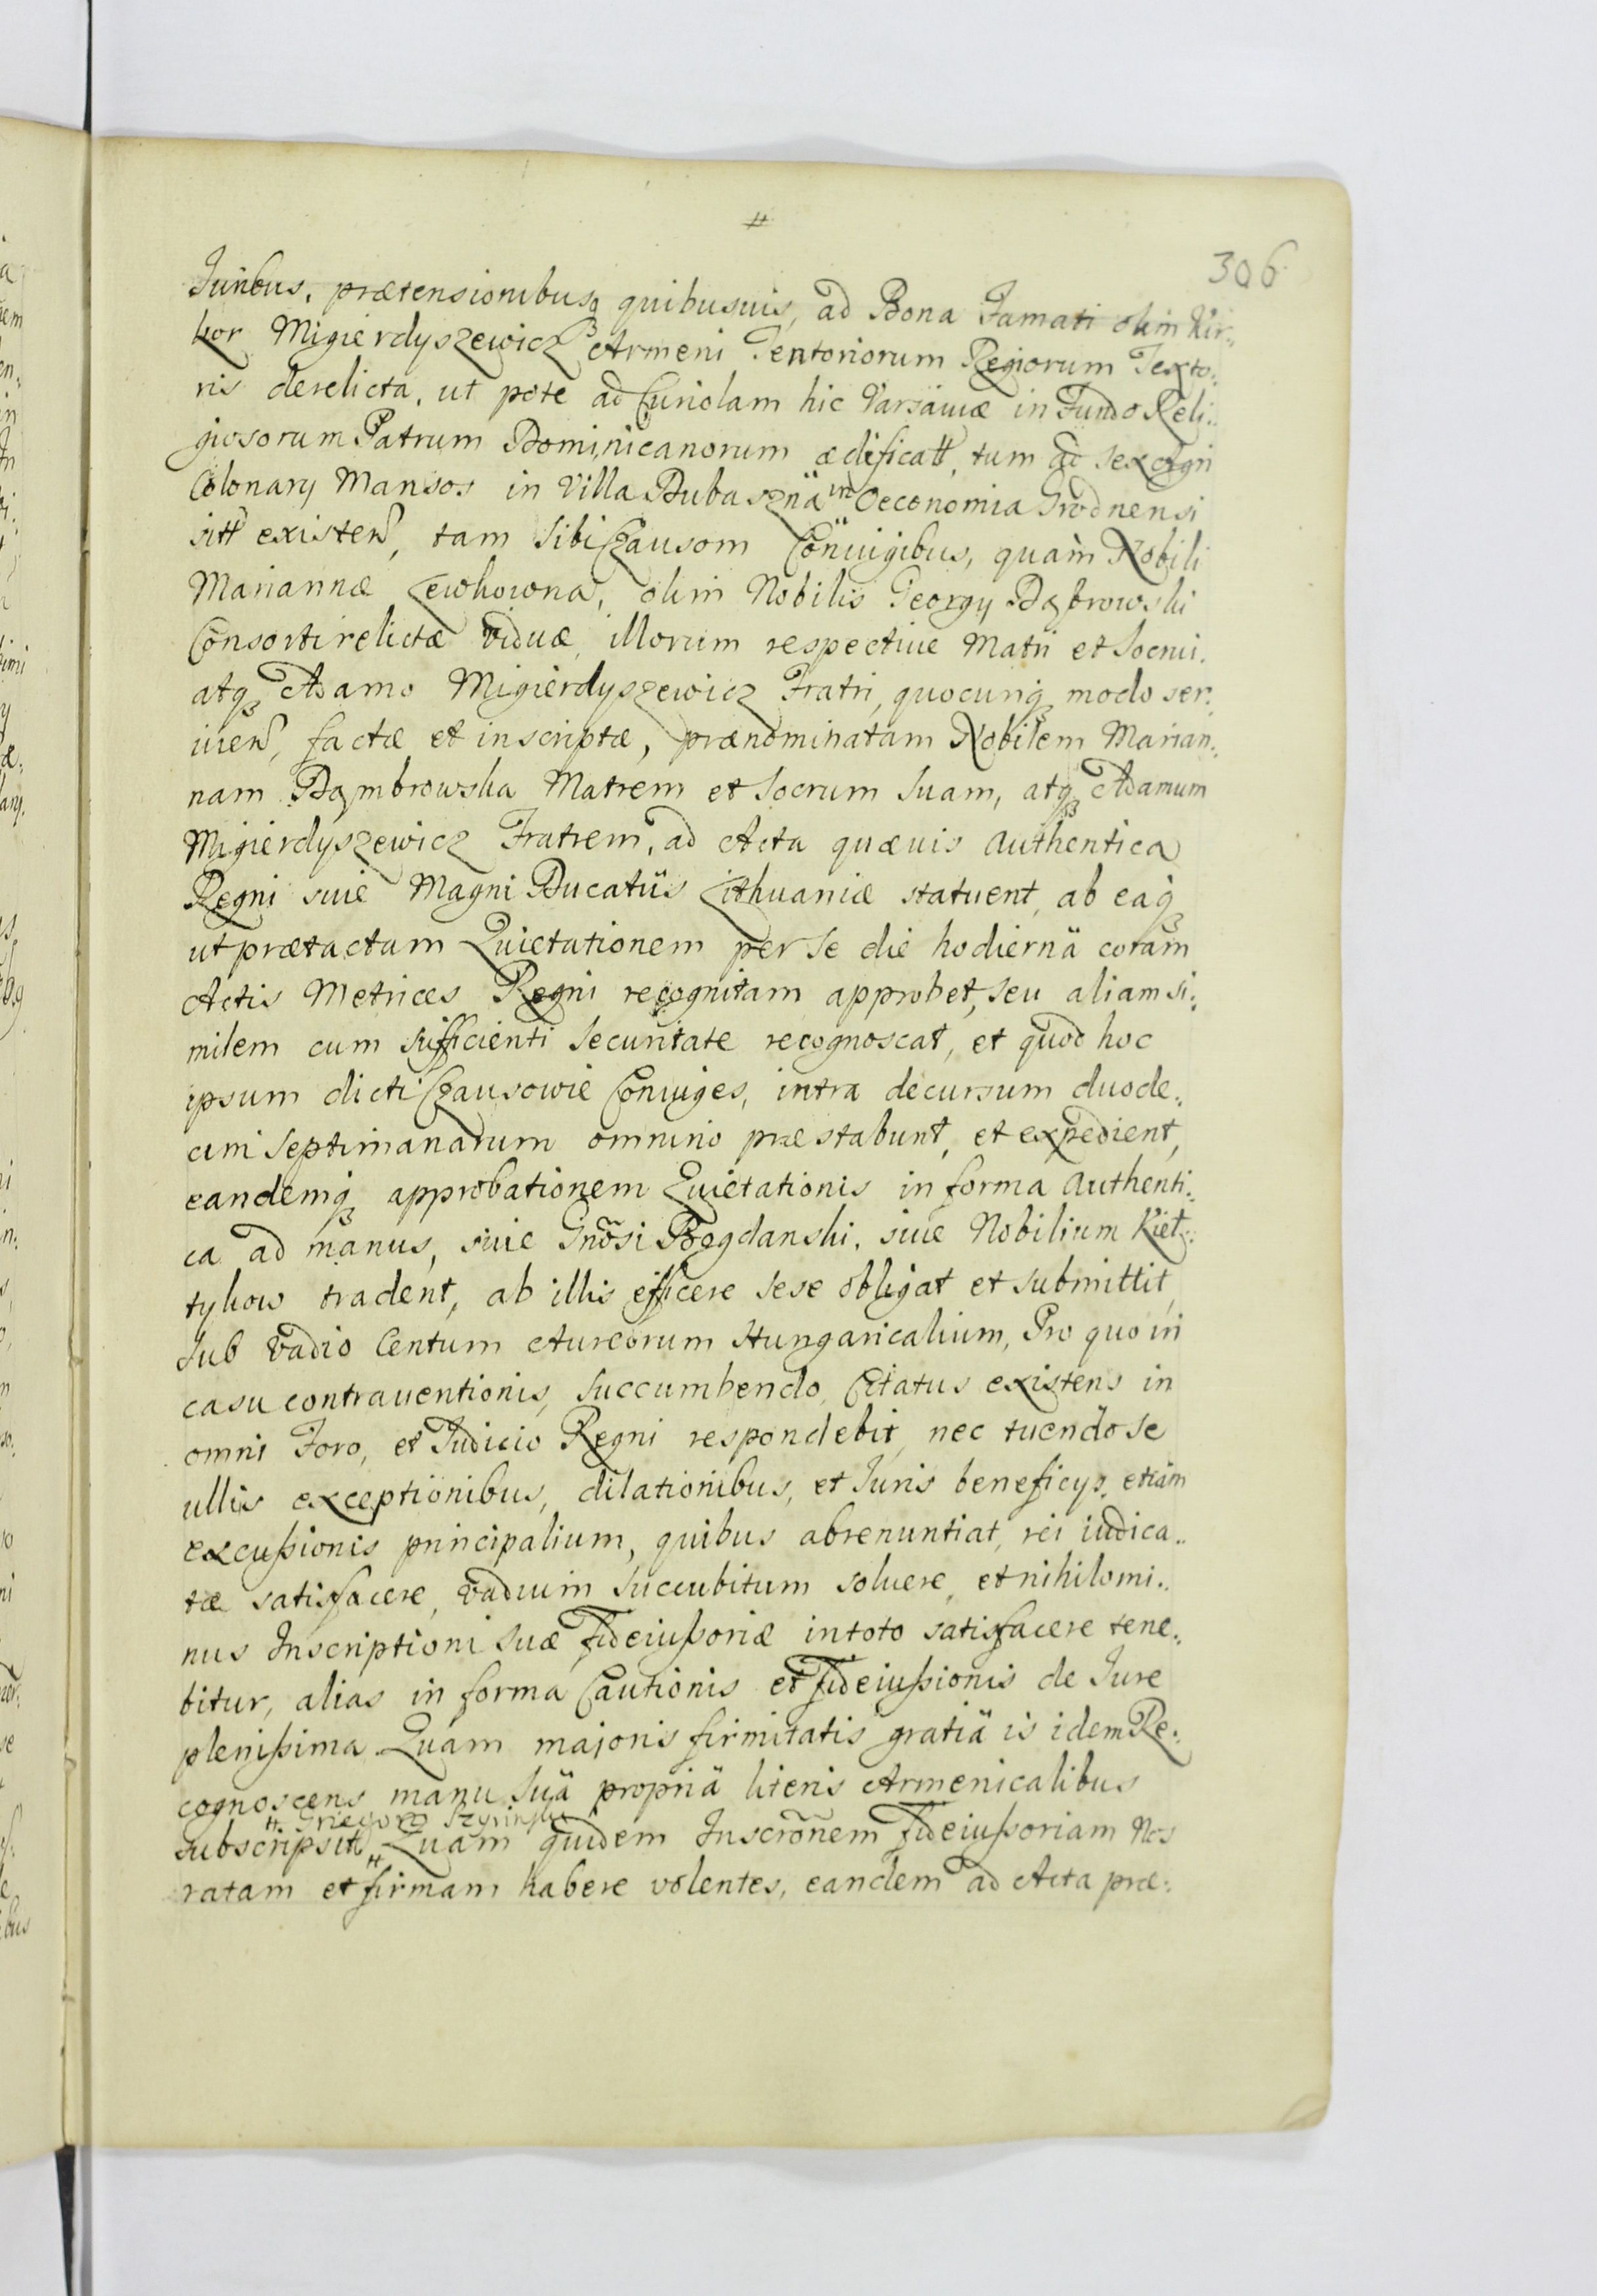 #
306
Juribus, prætensionibusq3 quibusuis, ad Bona Famati olim Kir:,
kor Migierdyszewicz Armeni Tentoriorum Regiorum Texto:,
ris derelicta, ut pote ad Curiolam hic Varsaviæ in Fundo Reli:,
giosorum Patrum Dominicanorum ædificatt, tum ad sex Agri
Colonarÿ Mansos in Villa Dubaszna in Oeconomia Grodnensi
sitt existen, tam sibi Czausom Coniugibus, quam Nobili
Mariannæ Lewkowna, olim Nobilis Georgÿ Dąbrowski
Consorti relictæ viduæ, illorum respectiue Matri et Socrui,
atq3 Adamo Migierdyszewicz Fratri, quocunq3 modo ser:,
uien, factæ et inscriptæ, prænominatam Nobilem Marian:,
nam Dąmbrowska Matrem et Socrum Suam, atq3 Adamum
Migierdyszewicz Fratrem, ad Acta quæuis Authentica
Regni siue Magni Ducatûs Lithuaniæ statuent, ab eaq3
ut prætactam Quietationem per Se die hodiernâ coram
Actis Metrices Regni recognitam approbet, seu aliam si:,
milem cum sufficienti Securitate recognoscat, et quod hoc
ipsum dicti Czausowie Coniuges, intra decursum duode:,
cim Septimanarum omnino præstabunt, et expedient,
eandemq3 approbationem Quietationis in forma Authenti:,
ca ad manus, siue Gnosi Bogdanski, siue Nobilium Kiet:,
tykow tradent, ab illis efficere sese obligat et submittit,
Sub vadio Centum Aureorum Hungaricalium, Pro quo in
casu contrauentionis, Succumbendo, Citatus existens in
omni Foro, et Iudicio Regni respondebit, nec tuendo Se
ullis exceptionibus, dilationibus, et Iuris beneficÿs, etiam
excußionis principalium, quibus abrenuntiat, rei iudica:,
tæ satisfacere, vadium Succubitum soluere, et nihilomi:,
nus Inscriptioni Suæ fideiußoriæ in toto satisfacere tene:,
bitur, alias in forma Cautionis et fideiußionis de Iure
plenißima. Quam majoris firmitatis gratiâ is idem Re:,
cognoscens manu Suâ propriâ literis Armenicalibus
# Griegorz
Subscripsit # Quam quidem Inscronem fideiußoriam Nos
ratam et firmam habere volentes, eandem ad Acta præ:,